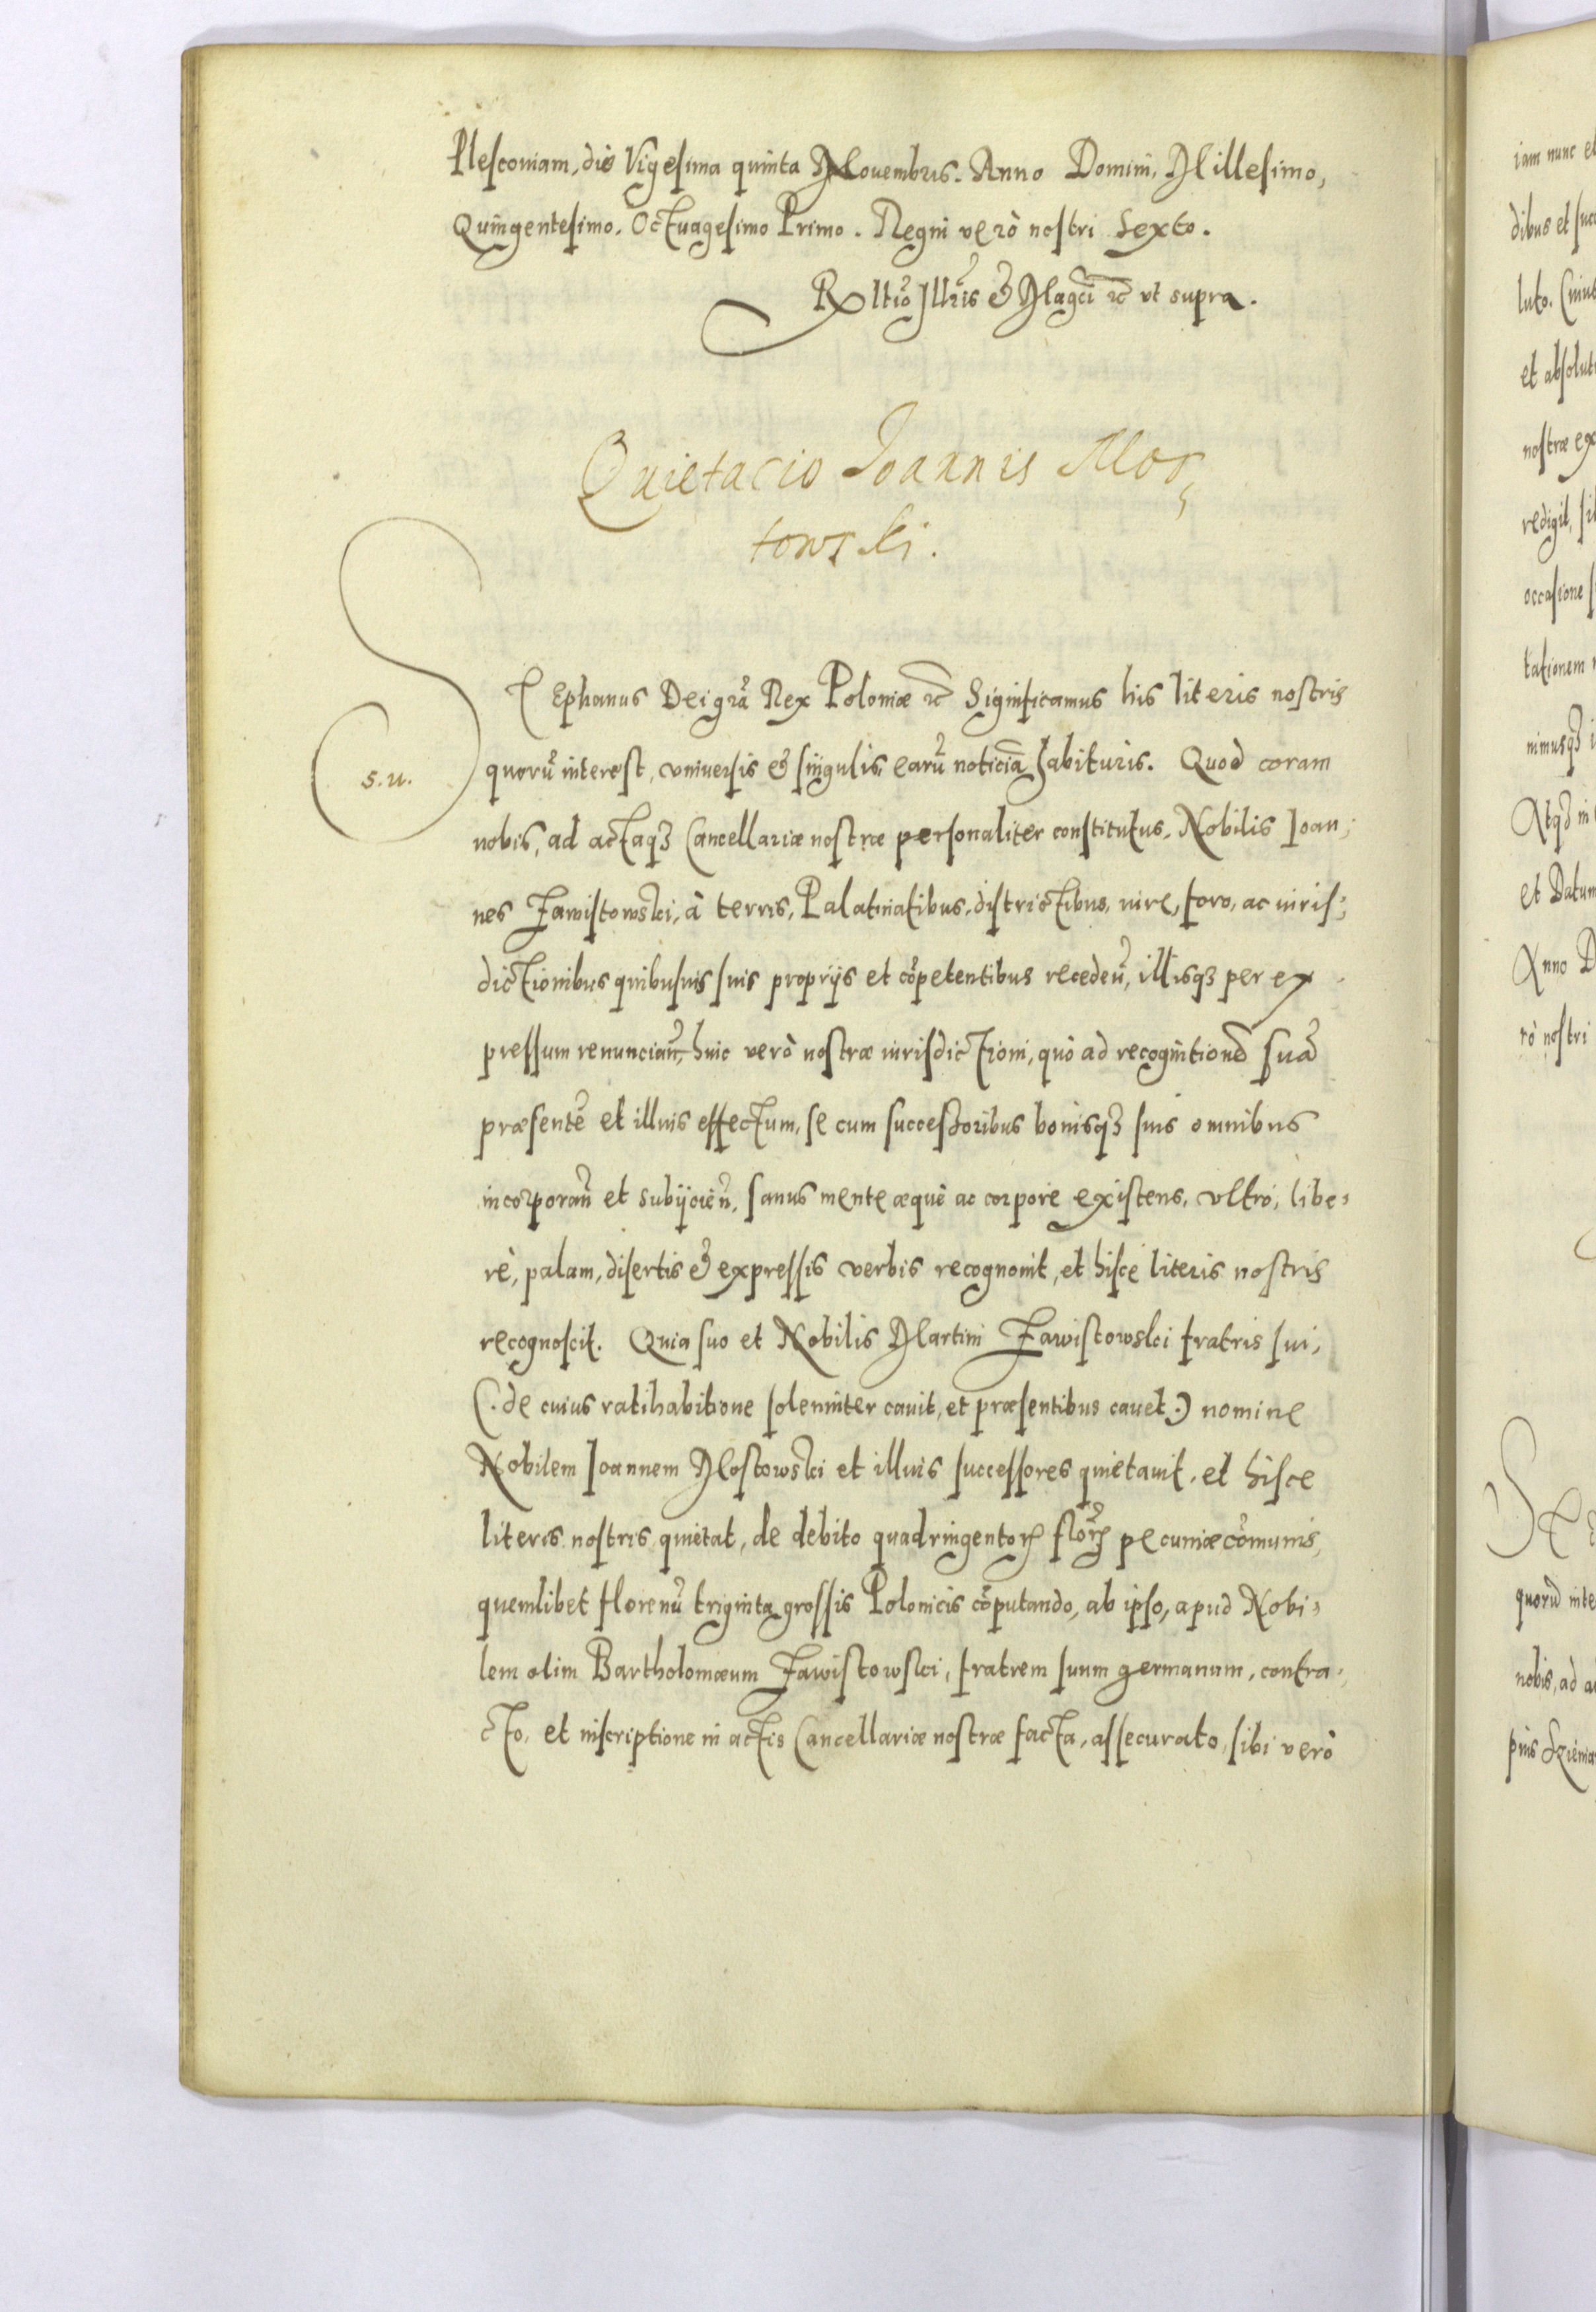 Plesconiam, die Vigesima quinta Nouembris. Anno Domini, Millesimo,
Quingentesimo, Octuagesimo Primo. Regni verò nostri Sexto.
Rltio Illris & Magci rc vt supra.
Quietacio Joannis Mos,
towski.
STEphanus Dei grã Rex Poloniæ rc Significamus his literis nostris
s. u.
quorũ interest, vniuersis & singulis, earũ noticiã habituris. Quod coram
nobis, ad actaqꝫ Cancellariæ nostræ personaliter constitutus, Nobilis Ioan,
nes Zawistowski, à terris, Palatinatibus, districtibus, iure, foro, ac iuris,
dictionibus quibusuis suis proprijs et cõpetentibus recedeñ, illisqꝫ per ex
pressum renunciañ, huic verò nostræ iurisdictioni, quò ad recognitionẽ suã
præsentẽ et illius effectum, se cum successoribus bonisqꝫ suis omnibus
incorporañ et subijcieñ, sanus mente æquè ac corpore existens, vltrò, libe,
rè, palam, disertis & expressis verbis recognouit, et hisce literis nostris
recognoscit. Quia suo et Nobilis Martini Zawistowski fratris sui,
(. de cuius ratihabitione solenniter cauit, et præsentibus cauet .) nomine
Nobilem Ioannem Mostowski et illius successores quietauit, et hisce
literis nostris quietat, de debito quadringentoꝝ floꝝ pecuniæ cõmunis,
quemlibet florenũ triginta grossis Polonicis cõputando, ab ipso, apud Nobi,
lem olim Bartholomæum Zawistowski, fratrem suum germanum, contra,
cto, et inscriptione in actis Cancellariæ nostræ facta, assecurato, sibi verò
iam nunc et
dibus et succ
luto.
et absolut
nostræ ex
redigit,
occasione
tationem
nimusqꝫ
Atqꝫ in
et Datum
Anno D
rò nostri
STE
quorũ inte
nobis, ad a